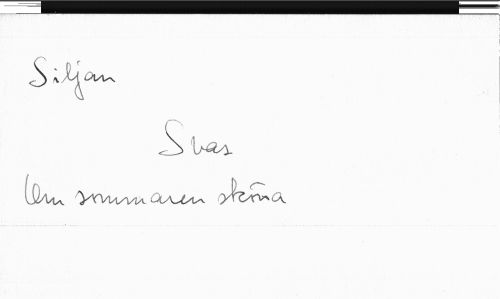 Siljan
Svas
Om sommaren sköna